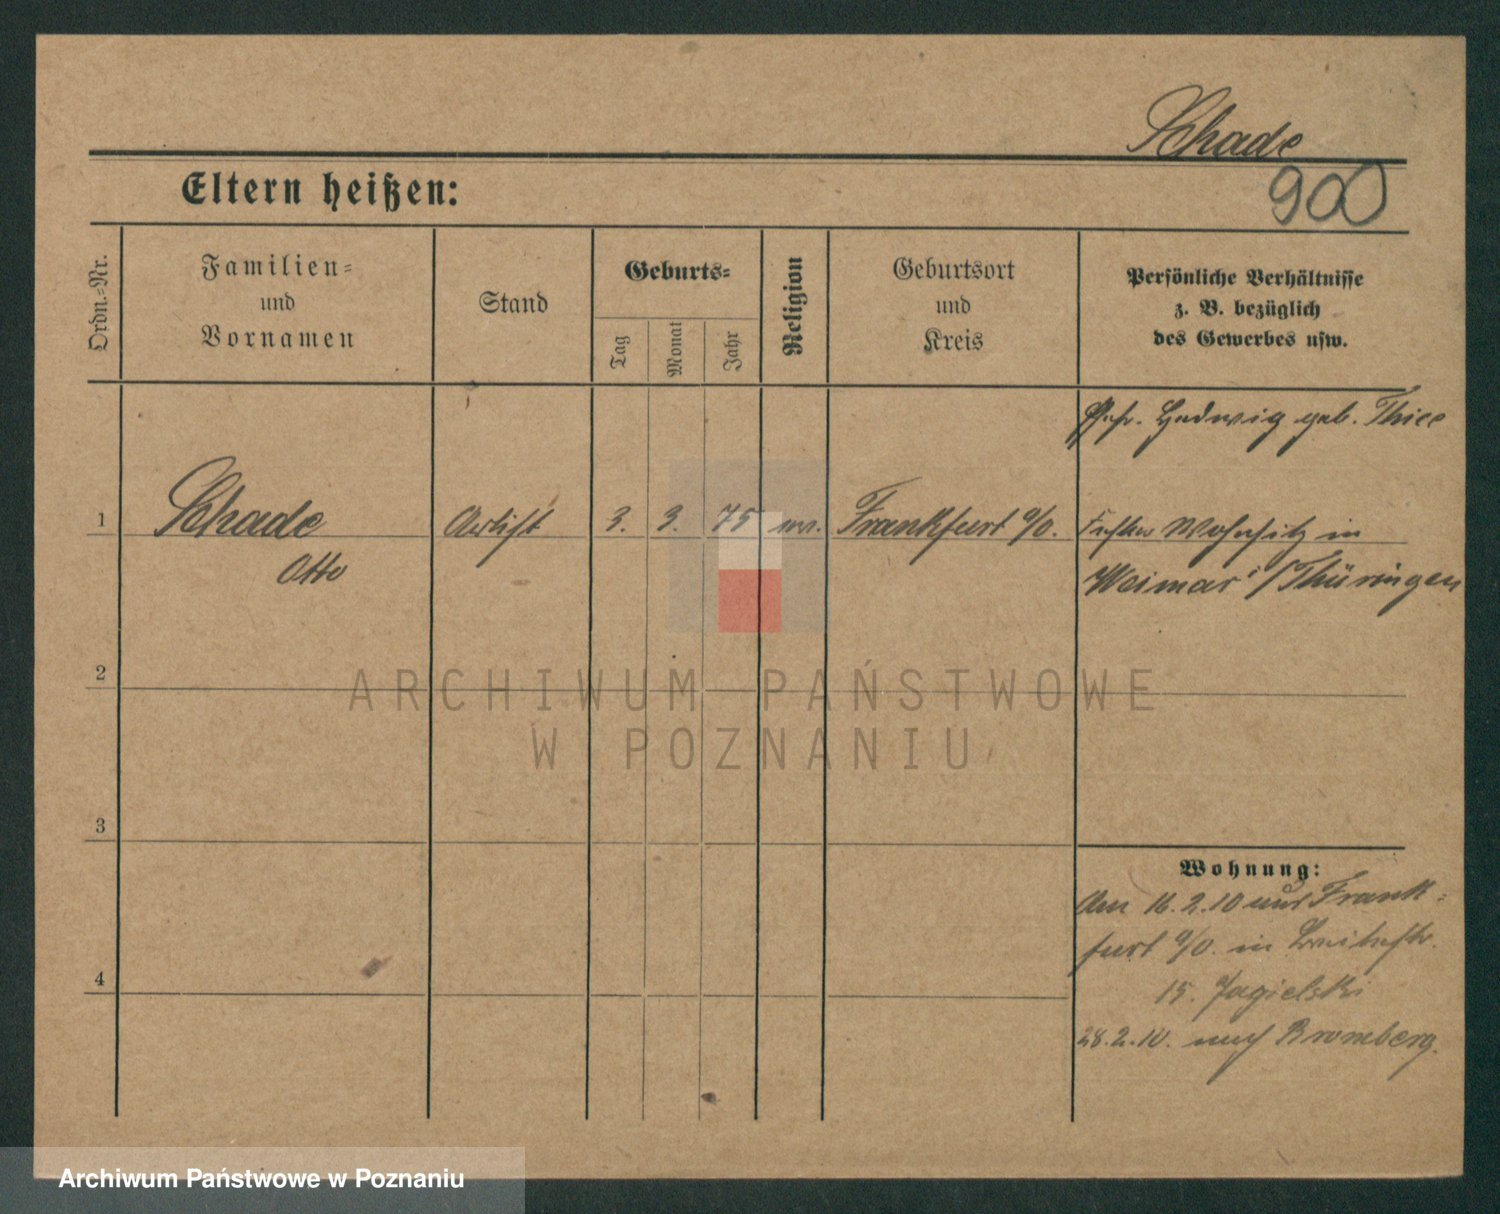 Schade
900
Eltern heißen:
Ordn.=Nr.
Familien=
und
Vornamen
Stand
Geburts=
Tag
Monat
Jahr
Religion
Geburtsort
und
Kreis
Persönliche Verhältnisse
z. B. bezüglich
des Gewerbes usw.
Hedwig geb.
1
Schade
Otto
Artist
3.
3.
75
Frankfurt a/O.
Wohnsitz in
Weimar i/Thüringen
2
3
4
Wohnung:
Am 16.2.10 aus Frank=
furt a/O. in Breitestr.
15. Jagielski
28.2.10. nach Bromberg.
ARCHIWUM PAŃSTWOWE
W POZNANIU
Archiwum Państwowe w Poznaniu